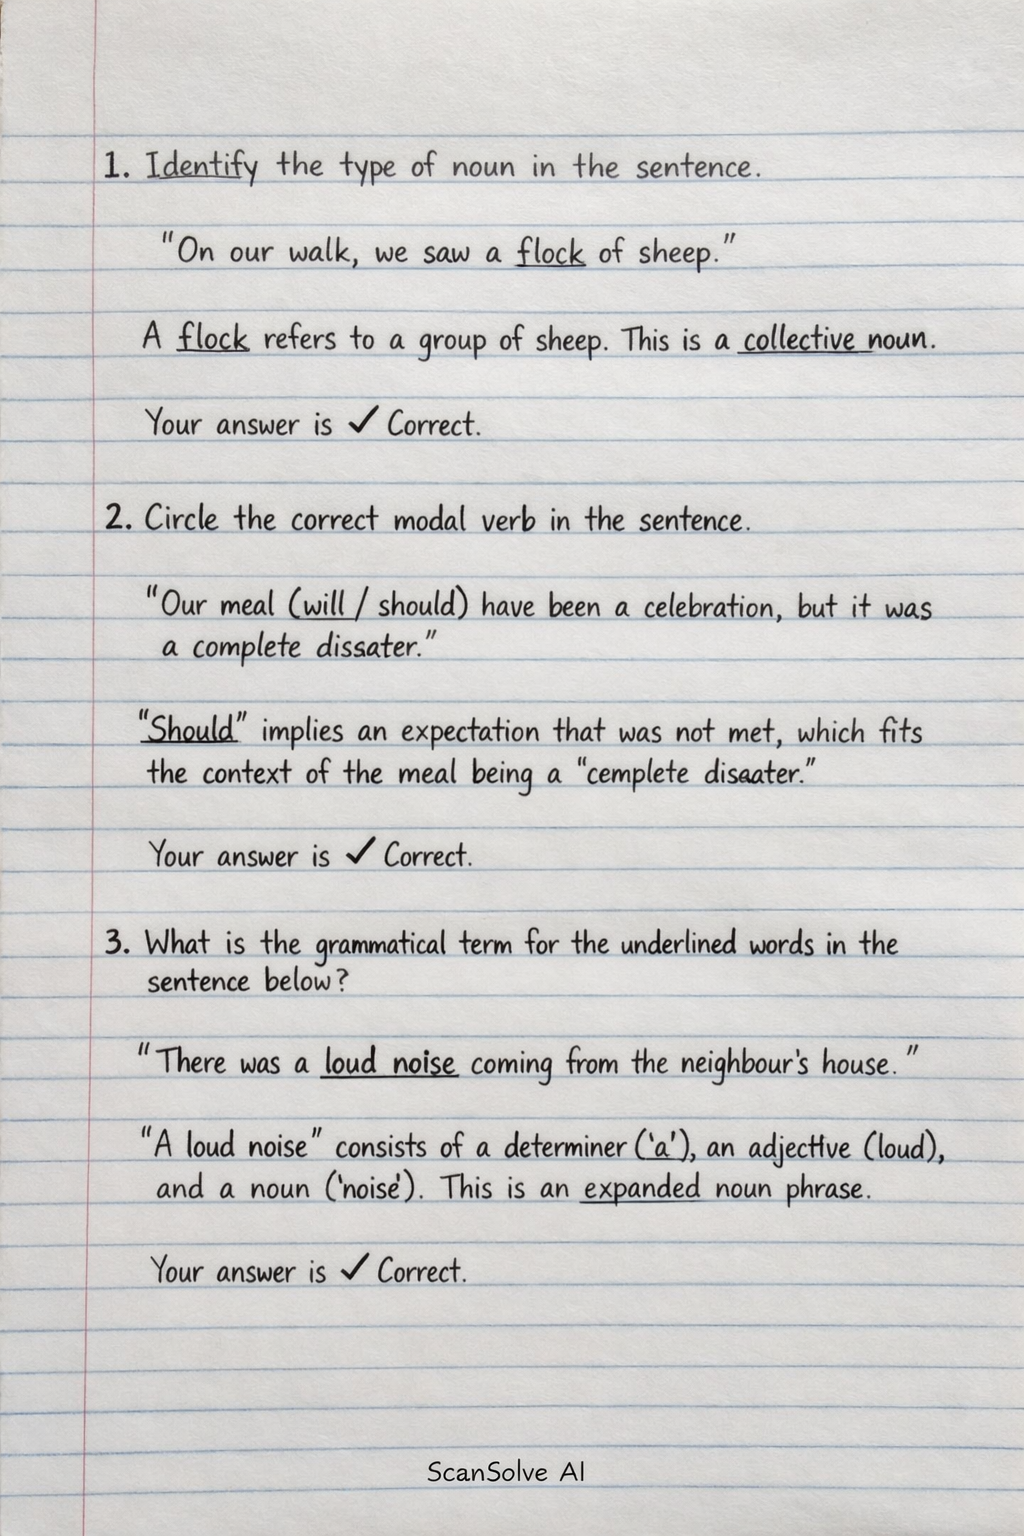 1. Identify the type of noun in the sentence.
"On our walk, we saw a flock of sheep."
A flock refers to a group of sheep. This is a collective noun.
Your answer is ✓ Correct.
2. Circle the correct modal verb in the sentence.
"Our meal (will / should) have been a celebration, but it was
a complete dissater."
"Should" implies an expectation that was not met, which fits
the context of the meal being a "cemplete diseater."
Your answer is ✓ Correct.
3. What is the grammatical term for the underlined words in the
sentence below?
"There was a loud noise coming from the neighbour's house."
"A loud noise" consists of a determiner ('a'), an adjective (loud),
and a noun ('noise'). This is an expanded noun phrase.
Your answer is ✓ Correct.
ScanSolve AI